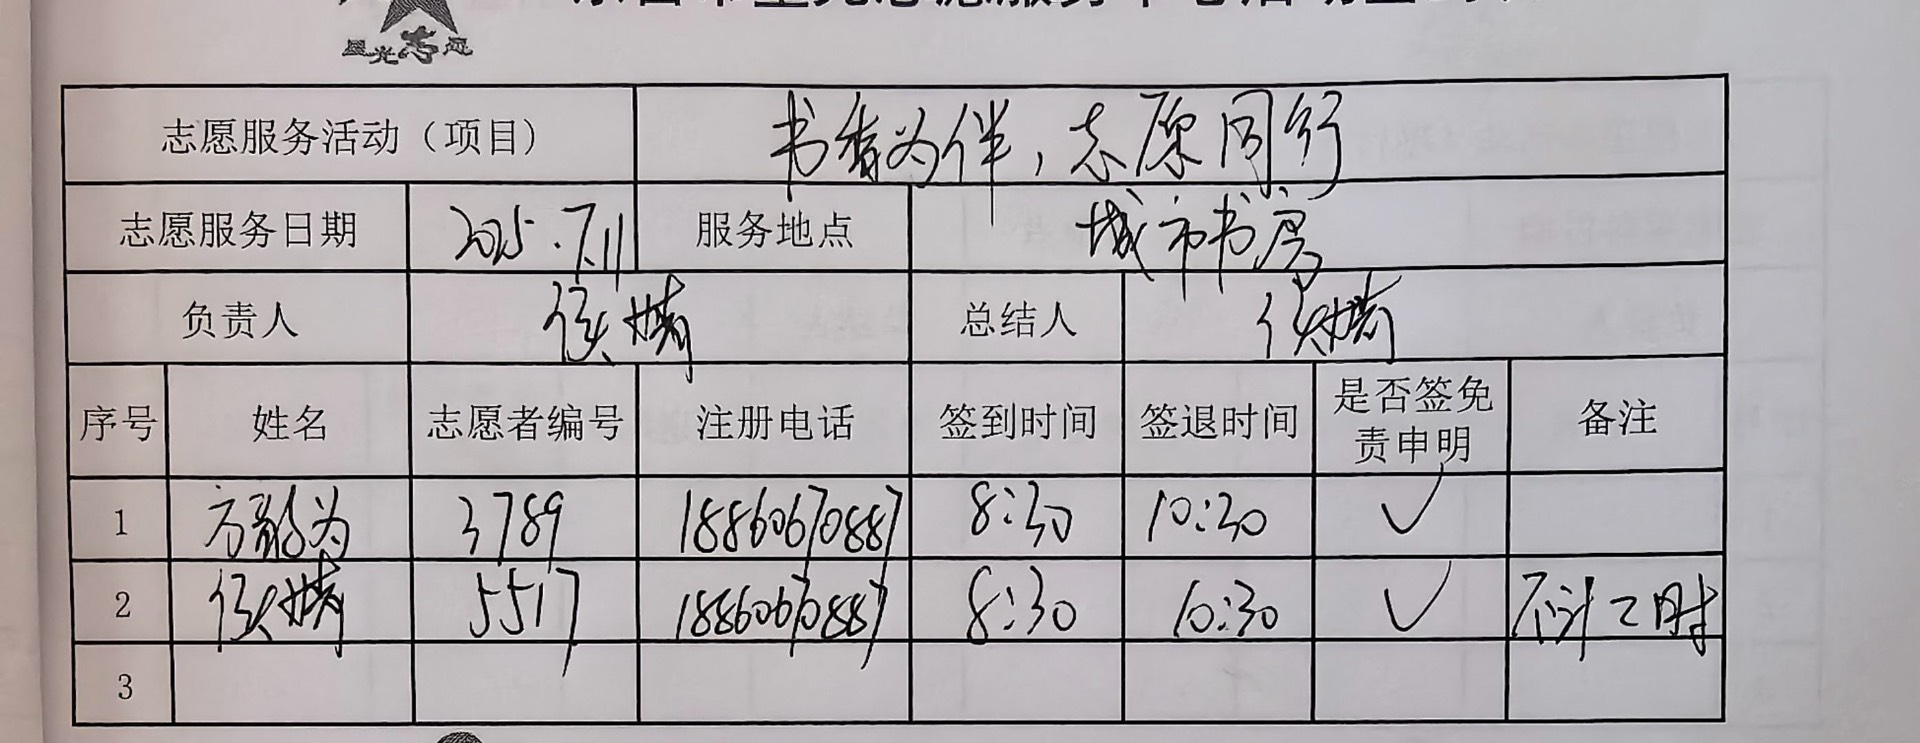 星光志愿
志愿服务活动（项目） 书香为伴，志愿同行
志愿服务日期 2025.7.11 服务地点 城市书房
负责人 侯婧 总结人 侯婧
序号 姓名 志愿者编号 注册电话 签到时间 签退时间 是否签免责申明 备注
1 方 为 3789 18860670887 8:30 10:30 ✓
2 侯婧 5517 18860670887 8:30 10:30 ✓ 不计工时
3